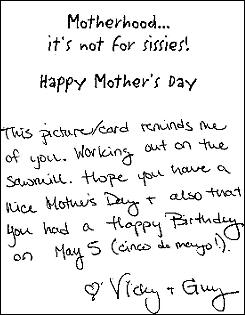 Motherhood...
it's not for sissies!
Happy Mother's Day
This picture/card reminds me
of you. Working out on the
sawmill. Hope you have a
nice Mother's Day + also that
you had a Happy Birthday
on May 5 (cinco de mayo!).
♡ Vicky + Guy